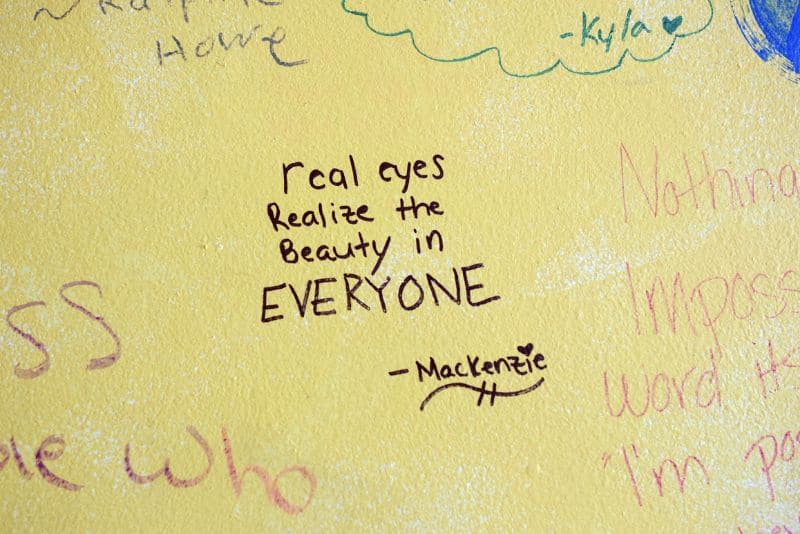 Howe
-Kyla
real eyes
Realize the
Beauty in
EVERYONE
-Mackenzie
ss
who
Nothing
Imposs
word its
"I'm pos